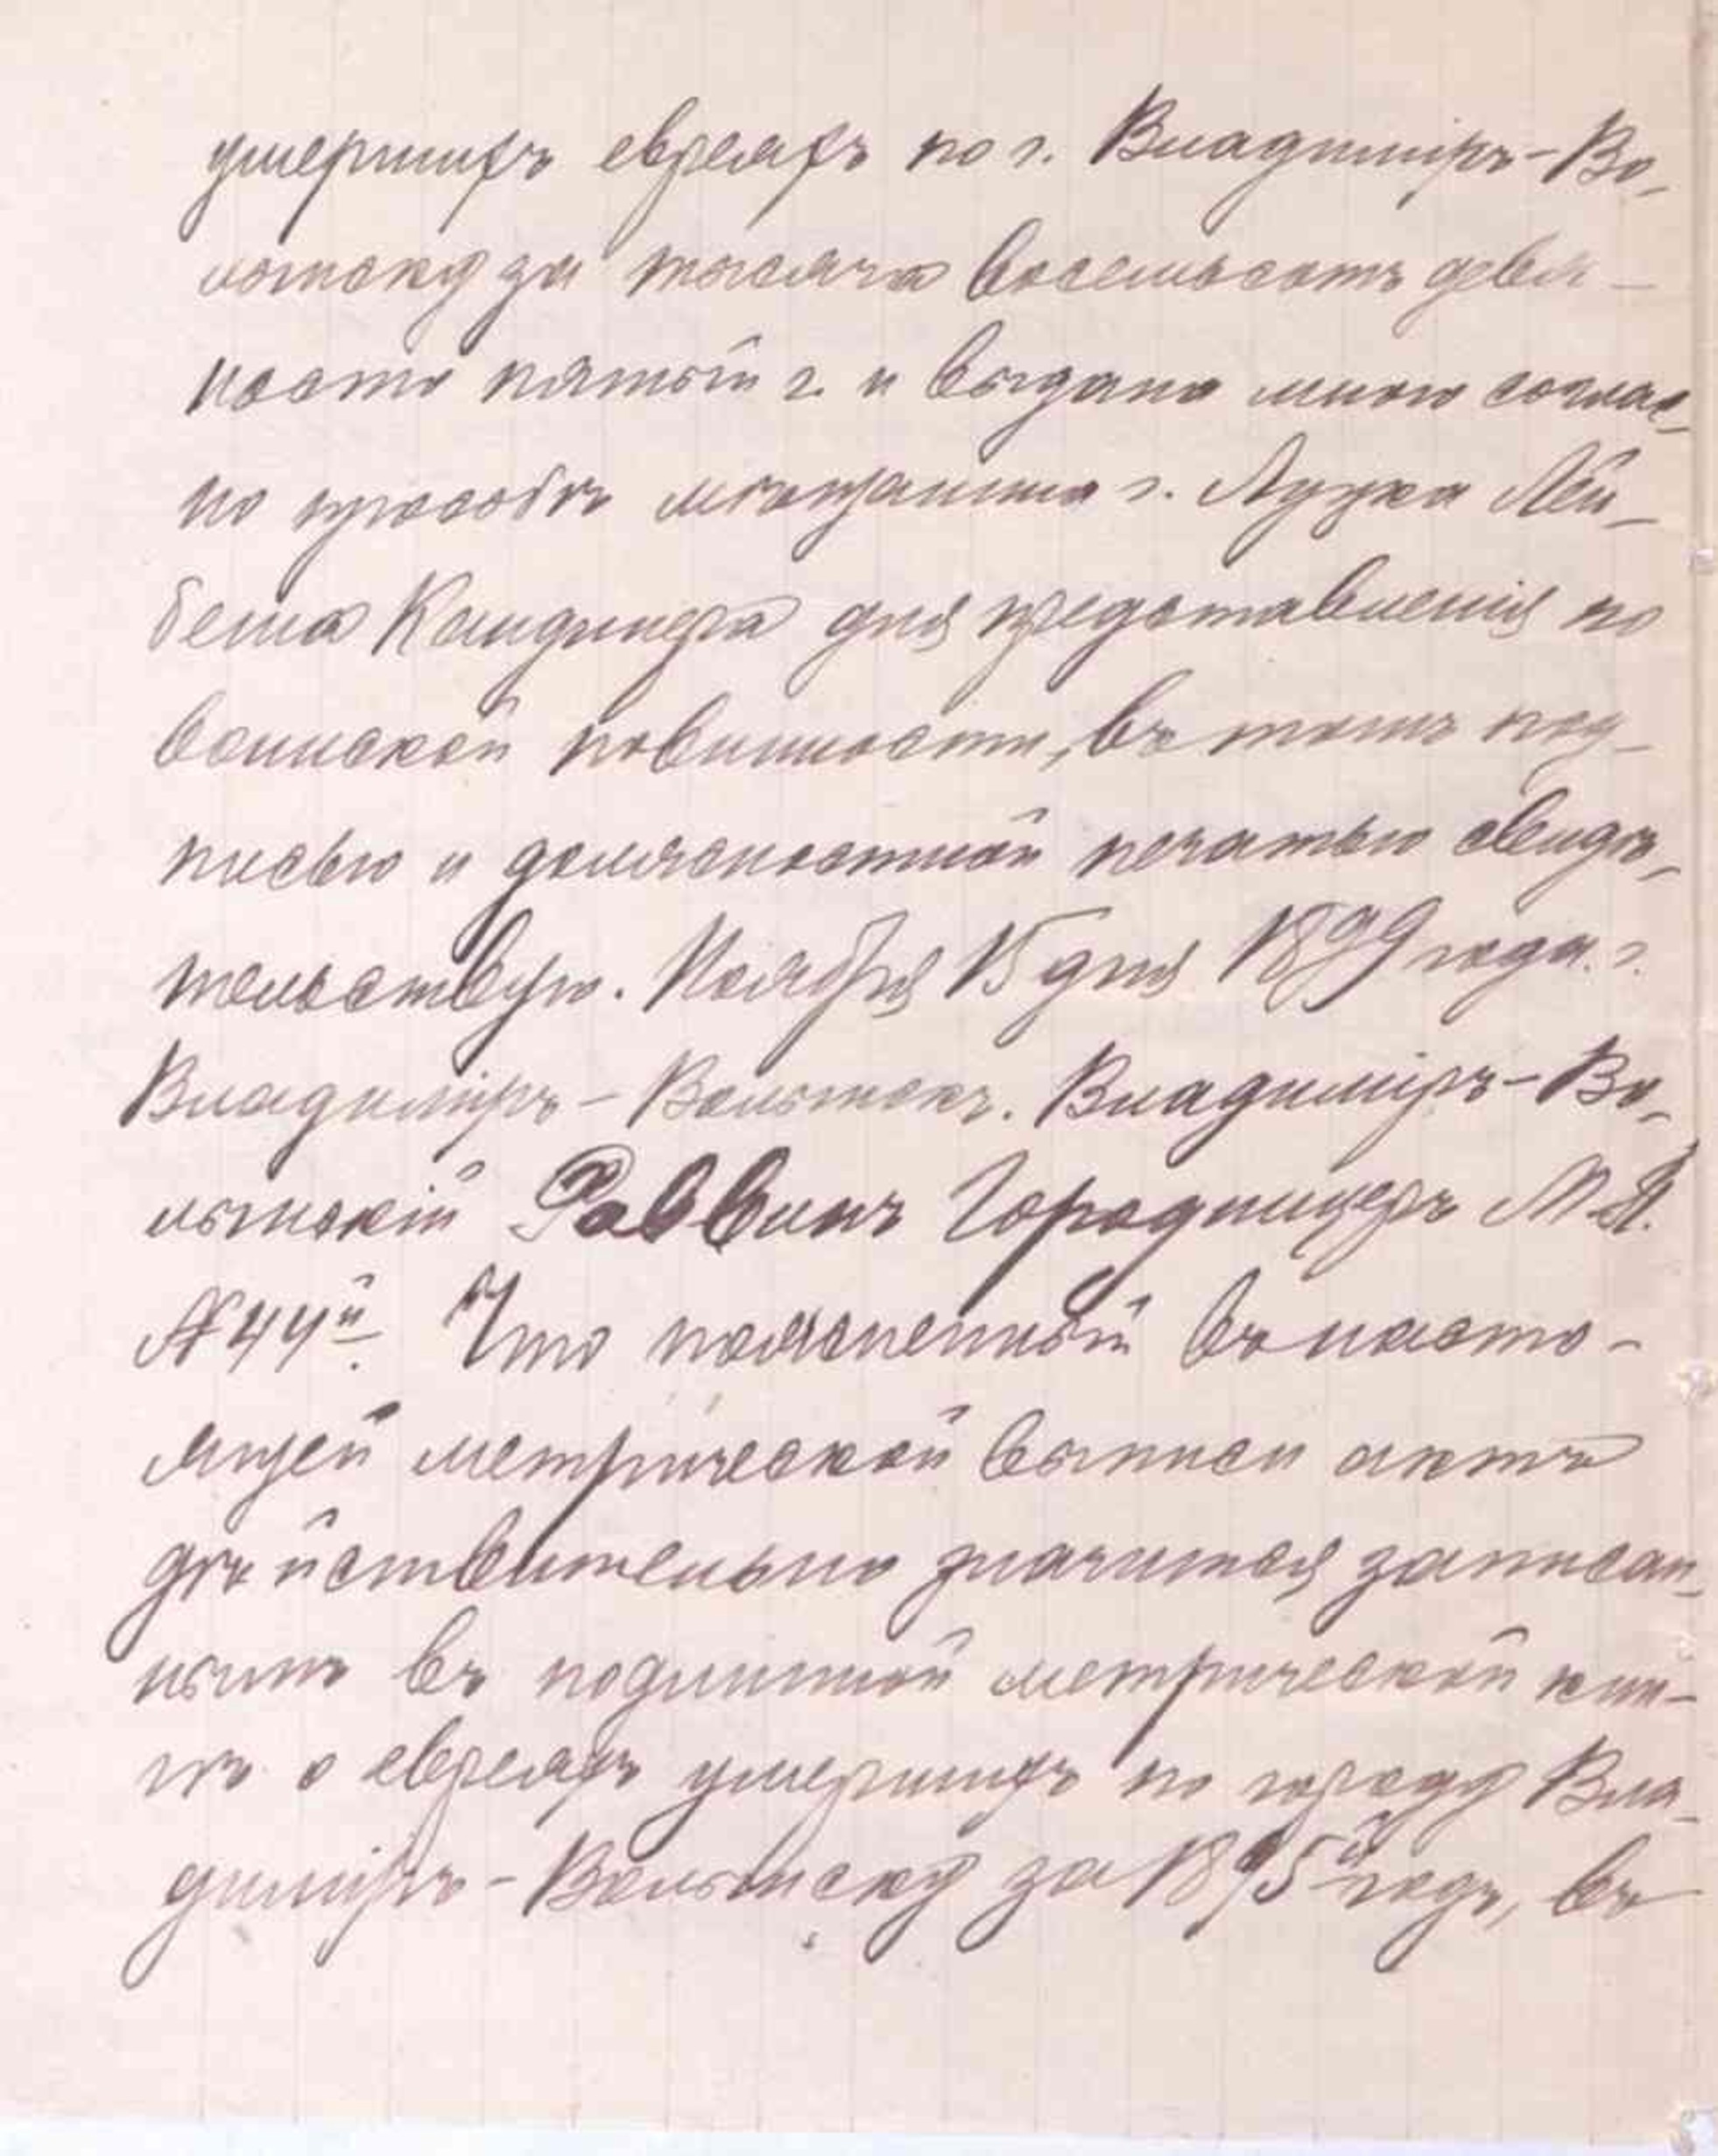 умершихъ евреяхъ по г. Владиміръ-Во-
лынску за тысяча восемьсотъ девя-
носто пятый г. и выдана мною соглас-
но просьбѣ мѣщанина г. Луцка Лей-
беша Кандинера для представленія по
воинской повинности, въ томъ под-
писью и должностной печатью свидѣ-
тельствую. Ноября 15 дня 1899 года. г.
Владиміръ-Волынскъ. Владиміръ-Во-
лынскій Раввинъ Городницеръ М.П.
№ 44й. Что поясненный въ насто-
ящей метрической выписи актъ
дѣйствительно значится записан-
нымъ въ подлинной метрической кни-
гѣ о евреяхъ умершихъ по городу Вла-
диміръ-Волынску за 1895й годъ, въ